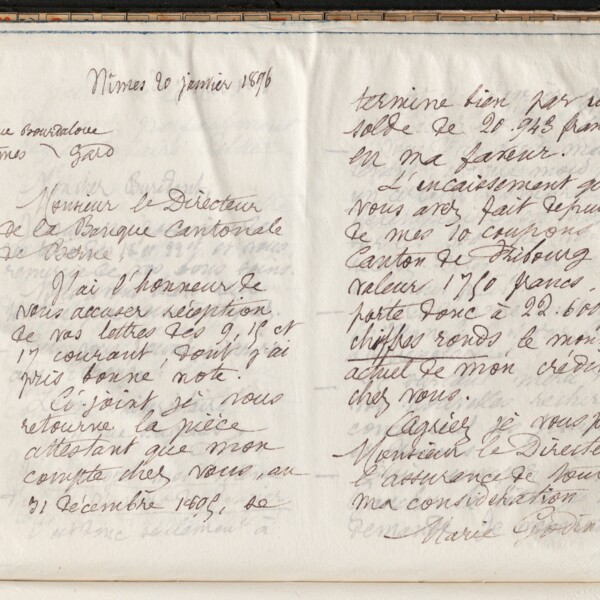 Nîmes 20 janvier 1896
rue Bourdaloue
Nîmes Gard
Monsieur le Directeur
de la Banque Cantonale
de Berne
J'ai l'honneur de
vous accuser réception
de vos lettres des 9, 15 et
17 courant dont j'ai
pris bonne note.
Ci-joint, je vous
retourne la pièce
attestant que mon
compte chez vous, au
31 décembre 1895, se
termine bien par u
solde de 20.943 fran
en ma faveur.
L'encaissement qu
vous avez fait depui
de mes 10 coupons
Canton de Fribourg
valeur 1750 francs,
porte donc à 22.600
chiffres ronds le mon
actuel de mon crédi
chez vous.
Agréez je vous p
Monsieur le Directe
l'assurance de tou
ma considération
Marie Godin